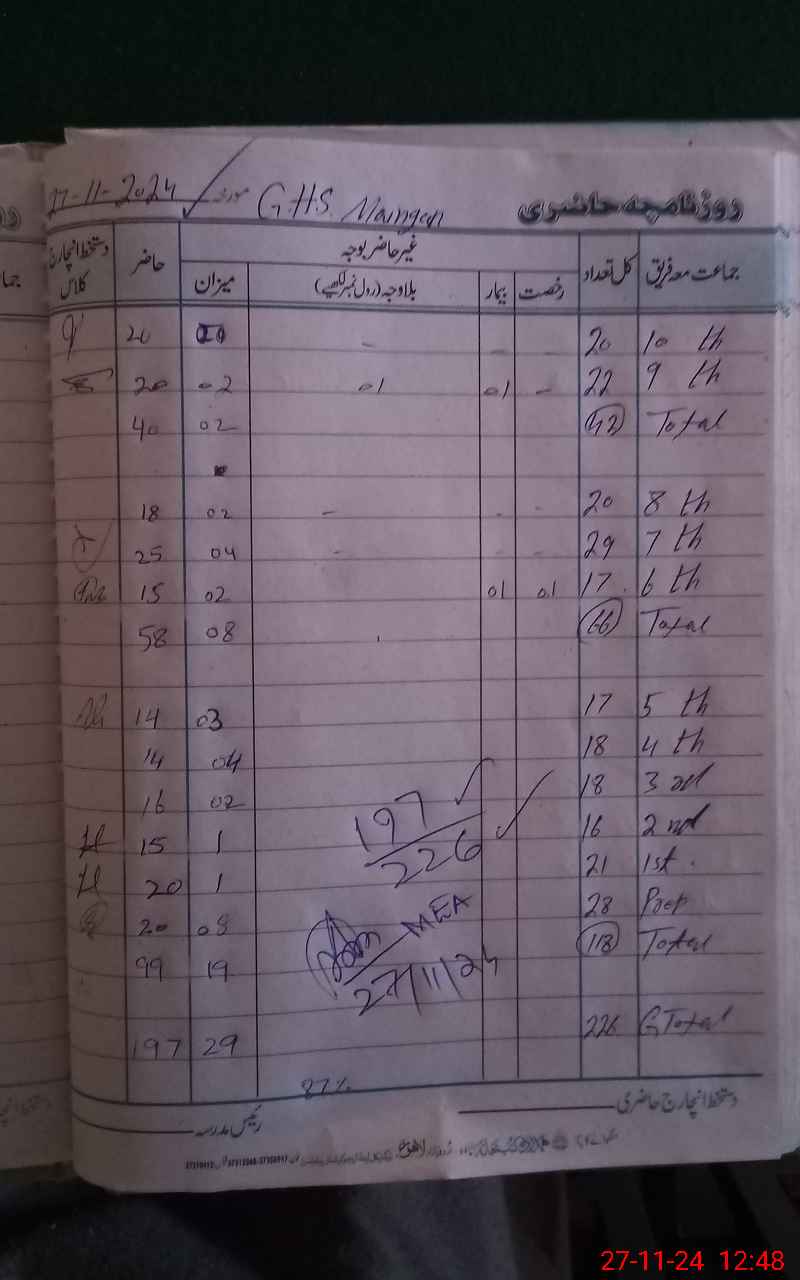 روزنامچہ حاضری G.H.S. Mangan مورخہ 27-11-2024
جماعت معہ فریق کل تعداد غیر حاضر بوجہ حاضر دستخط انچارج کلاس
رخصت بیمار بلاوجہ (رول نمبر لکھیے) میزان
10 th 20 - - - 20
9 th 22 - 01 01 02 20
Total 42 02 40
8 th 20 - - - 02 18
7 th 29 - - - 04 25
6 th 17 01 01 02 15
Total 66 08 58
5 th 17 03 14
4 th 18 04 14
3 rd 18 02 16
2 nd 16 1 15
1st. 21 1 20
Prep 28 08 20
Total 118 19 99
G Total 226 29 197
197
226
MEA
27/11/24
87%
دستخط انچارج حاضری
رئیس مدرسہ
27-11-24 12:48